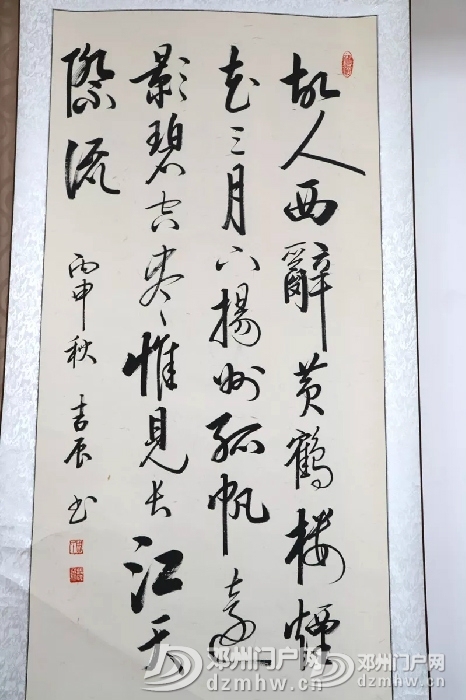 故人西辭黄鶴楼煙
花三月下揚州孤帆遠
影碧空尽惟見长江天
際流
丙申秋 吉辰书
邓州门户网
www.dzmhw.cn
邓州门户网
www.dzmhw.cn